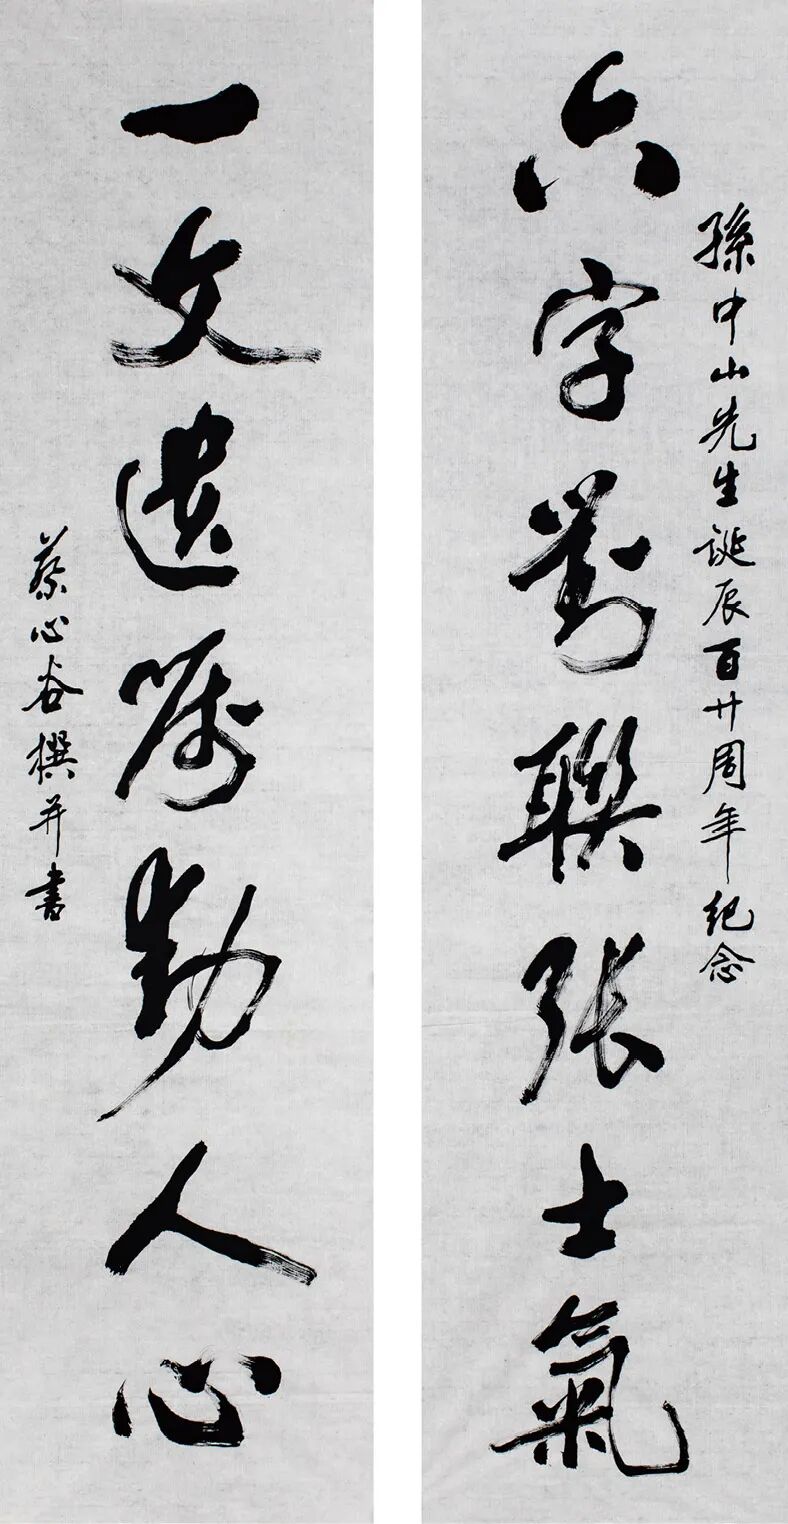 孫中山先生誕辰百廿周年紀念
六字對聯張士氣
一文遺囑動人心
蔡心谷撰并書